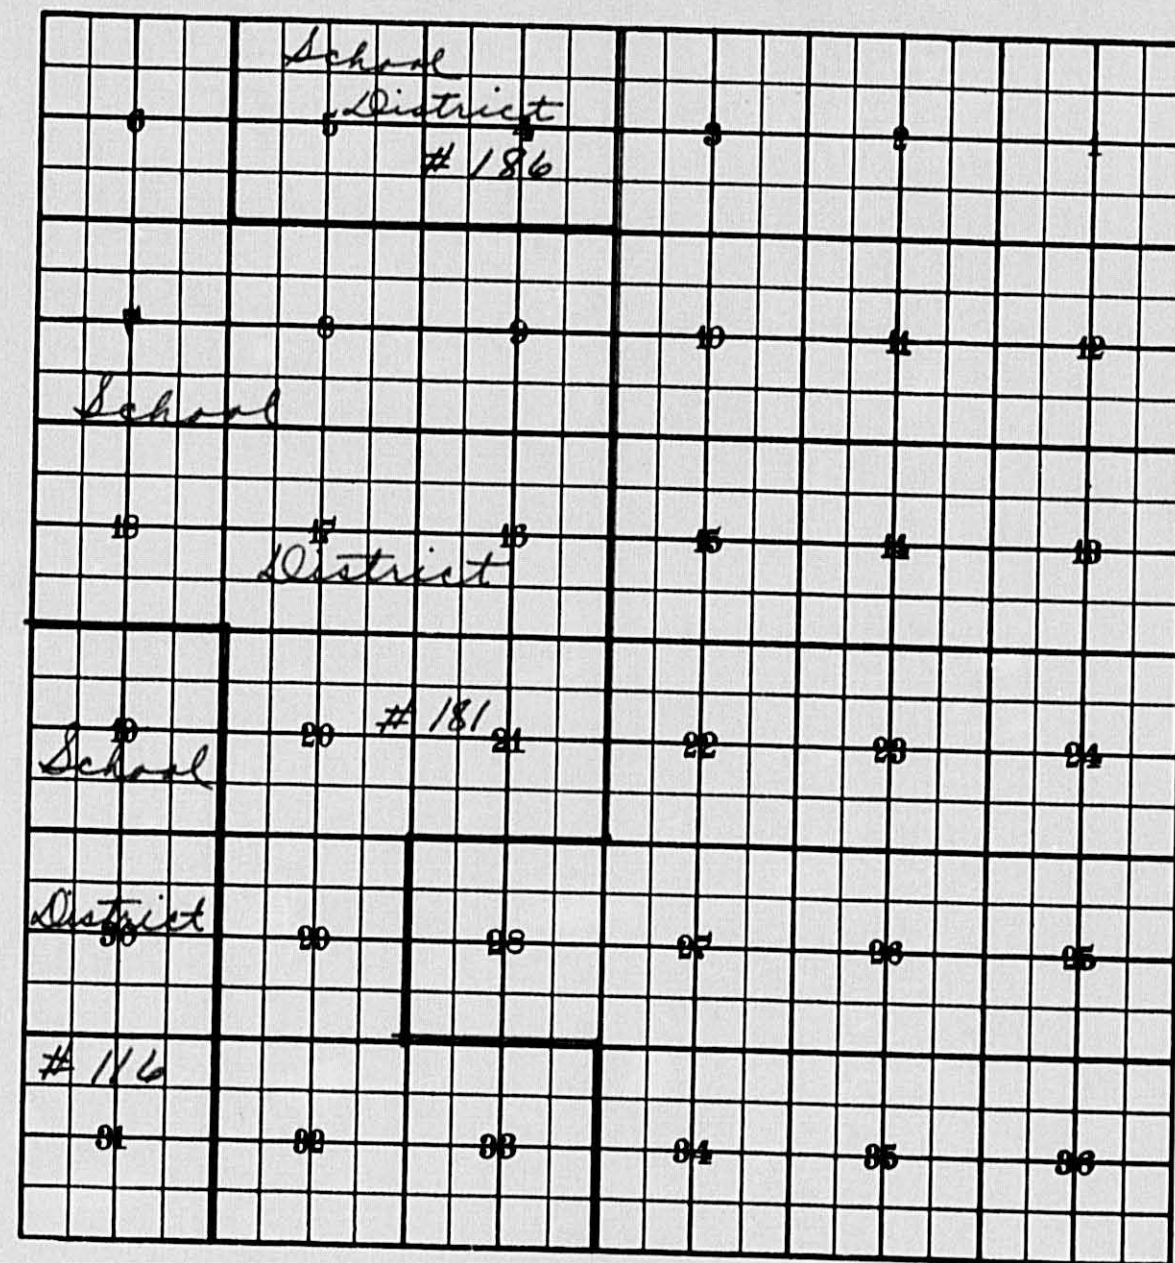 School
District
# 186
6 5 4 3 2 1
7 8 9 10 11 12
School
18 17 16 15 14 13
District
# 181
19 20 21 22 23 24
School
District
30 29 28 27 26 25
# 116
31 32 33 34 35 36